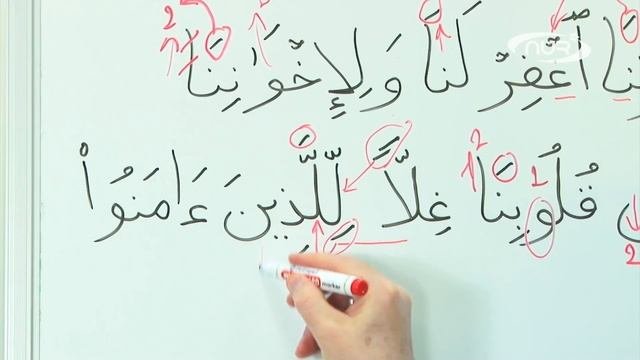 نَا ٱغْفِرْ لَنَا وَلِإِخْوَٰنِنَا
قُلُوبِنَا غِلًّا لِّلَّذِينَ ءَامَنُوا۟
NUR